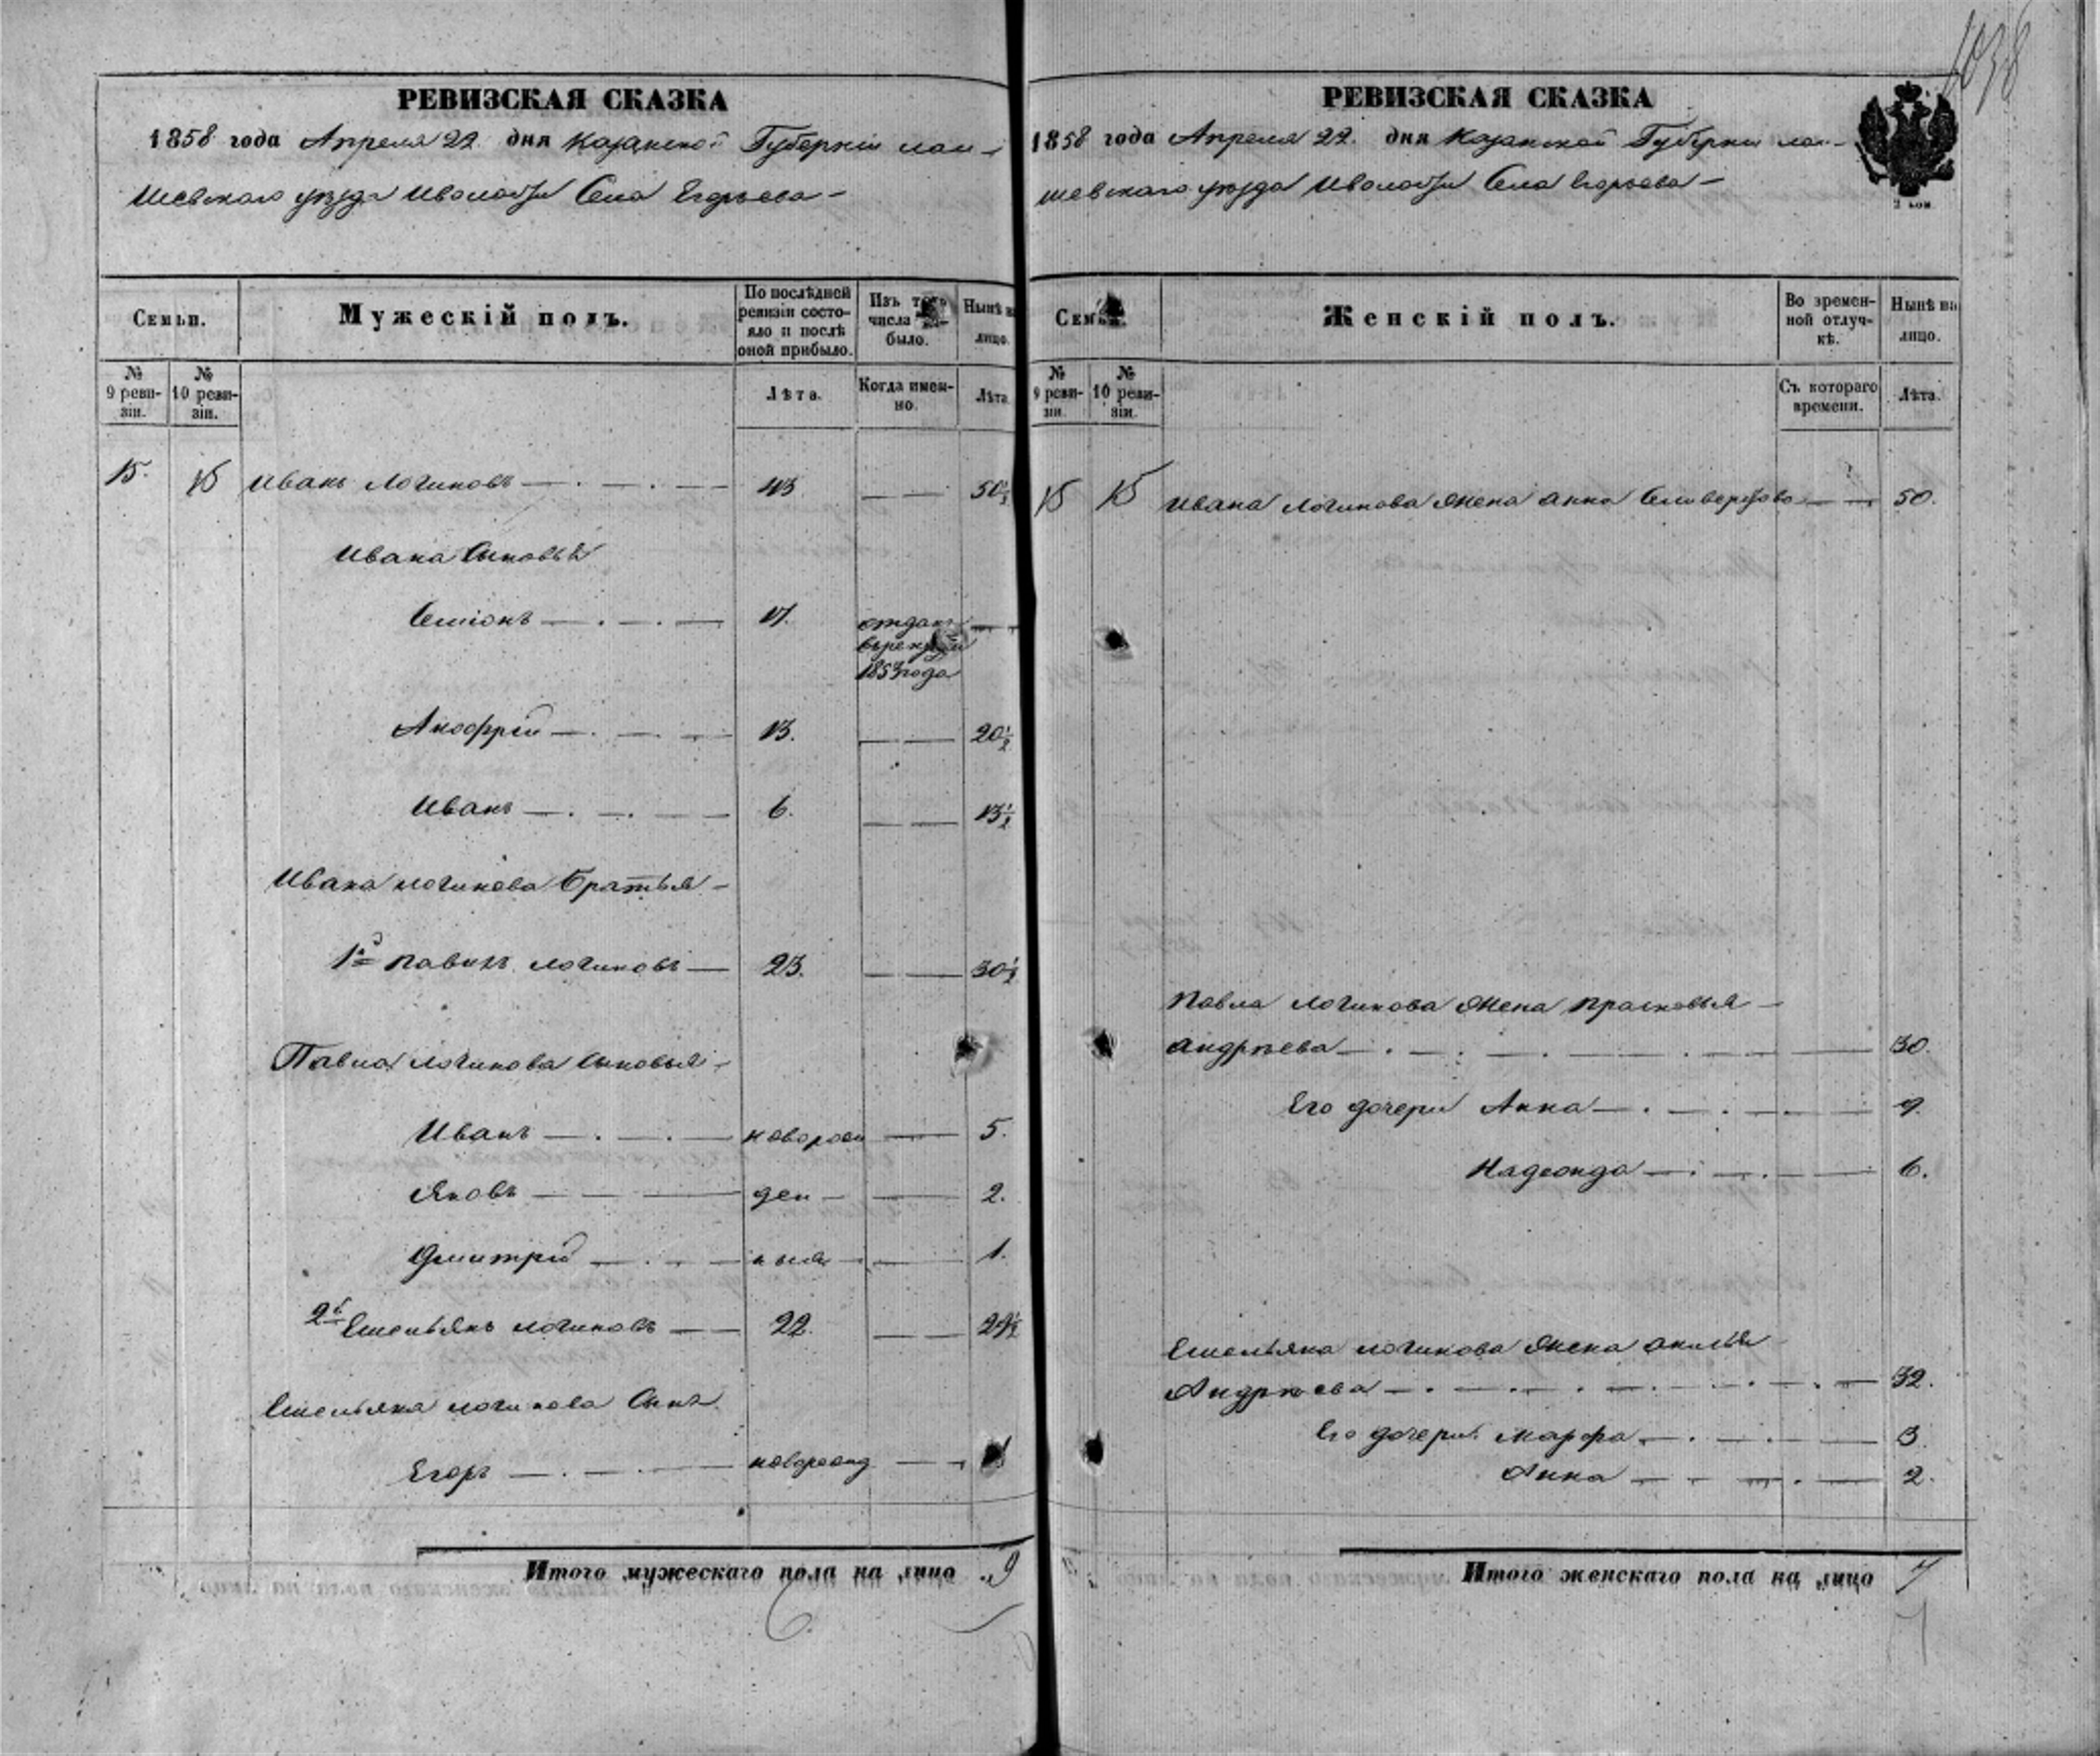 1038
РЕВИЗСКАЯ СКАЗКА
1858 года Апреля 22 дня Казанской Губерніи лаи-
шевскаго уезда Иволости Села Егорьева
Семьи.
Мужескій полъ.
По послѣдней ревизіи состояло и послѣ оной прибыло.
Изъ того числа выбыло.
Нынѣ на лицо.
№ 9 ревизіи.
№ 10 ревизіи.
Лѣта.
Когда именно.
Лѣта.
15. 15 Иванъ Логиновъ 43 50½
Ивана Сыновья
Семіонъ 17. отданъ
въ рекруты
1853 года
Анофрій 13. 20½
Иванъ 6. 13½
Ивана логинова Братья
1й павилъ логиновъ 23. 30½
Павла логинова Сыновья
Иванъ новорож 5.
Яковъ ден 2.
Дмитрій ныя 1.
2й Емельянъ логиновъ 22. 29½
Емельяна логинова Сынъ
Егоръ еворожд 1
Итого мужескаго пола на лицо 9
РЕВИЗСКАЯ СКАЗКА
1858 года Апреля 22. дня Казанской Губерніи лаи-
шевскаго уезда Иволости Села Егорьева
2 коп
Семьи.
Женскій полъ.
Во времен-
ной отлуч-
кѣ.
Нынѣ на
лицо.
№ 9 ревизіи.
№ 10 ревизіи.
Съ котораго
времени.
Лѣта.
15 15 Ивана логинова жена анна Селиверстова 50.
Павла логинова жена прасковья
андрѣева 30.
Его дочери Анна 9.
Надежда 6.
Емельяна логинова жена акилья
Андрѣева 32.
Его дочери марфа 3
Анна 2.
Итого женскаго пола на лицо 7